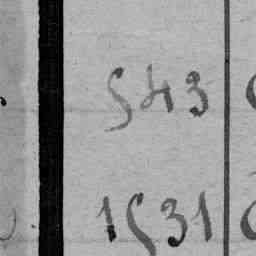 543
1531